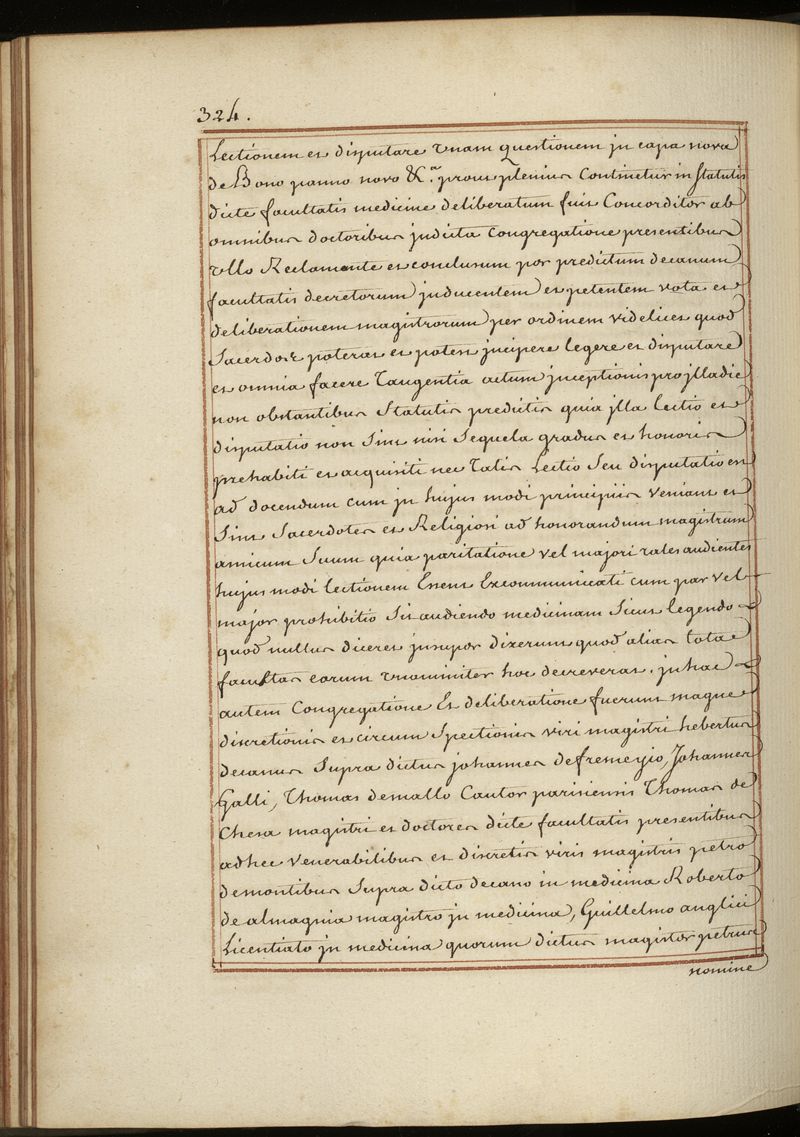 324.
Lectionem et disputare Vnam questionem jn capa nova
de Bono panno novo &c.a prout plenius Continetur in Statutis
dicte facultatis medicine deliberatum fuit Concorditer ab
omnibus doctoribus jndicta Congregatione presentibus
Vllo Reclamante et conclusum per predictum decanum
facultatis decretorum jnducentem et petentem vota et
deliberationem magistrorum per ordinem videlicet quod
Sacerdos poterat et potest jncipere legere et disputare
et omnia facere Tangentia actum jnceptionis pro jlladie
non obstantibus Statutis predictis quia jlla lectio et
disputatio non Sint nisi Sequela gradus et honoris
prehabiti et acquisiti nec Talis Lectio Seu disputatio est
ad docendum cum jn hujus modi principiis Veniant et
Sint Sacerdotes et Religiosi ad honorandum magistrum
amicum Suum quia paritatione vel majori tales audientes
hujus modi lectionem Essent Excommunicati cum par vel
major prohibitio Sit audiendo medicinam Sicut legendo
quod nullus diceret jnsuper dixerunt quod alias tota
facultas eorum Vnanimiter hoc decreverat. jn hac
autem Congregatione Et deliberatione fuerunt magne
discretionis et circum Spectionis viri magistri hebertus
decanus Supra dictus johannes defremeyio, Johannes
Galli, Thomas demallo Cantor parisiensis Thomas de
Chesa magistri et doctores dicte facultatis presentibus
adhec venerabilibus et discretis viris magistris petro
demontibus Supra dicto decano in medicina Roberto
de almaguia magistro jn medicina, Guillelmo anglici
Licentiato jn medicina quorum dictus magister petrus
nomine